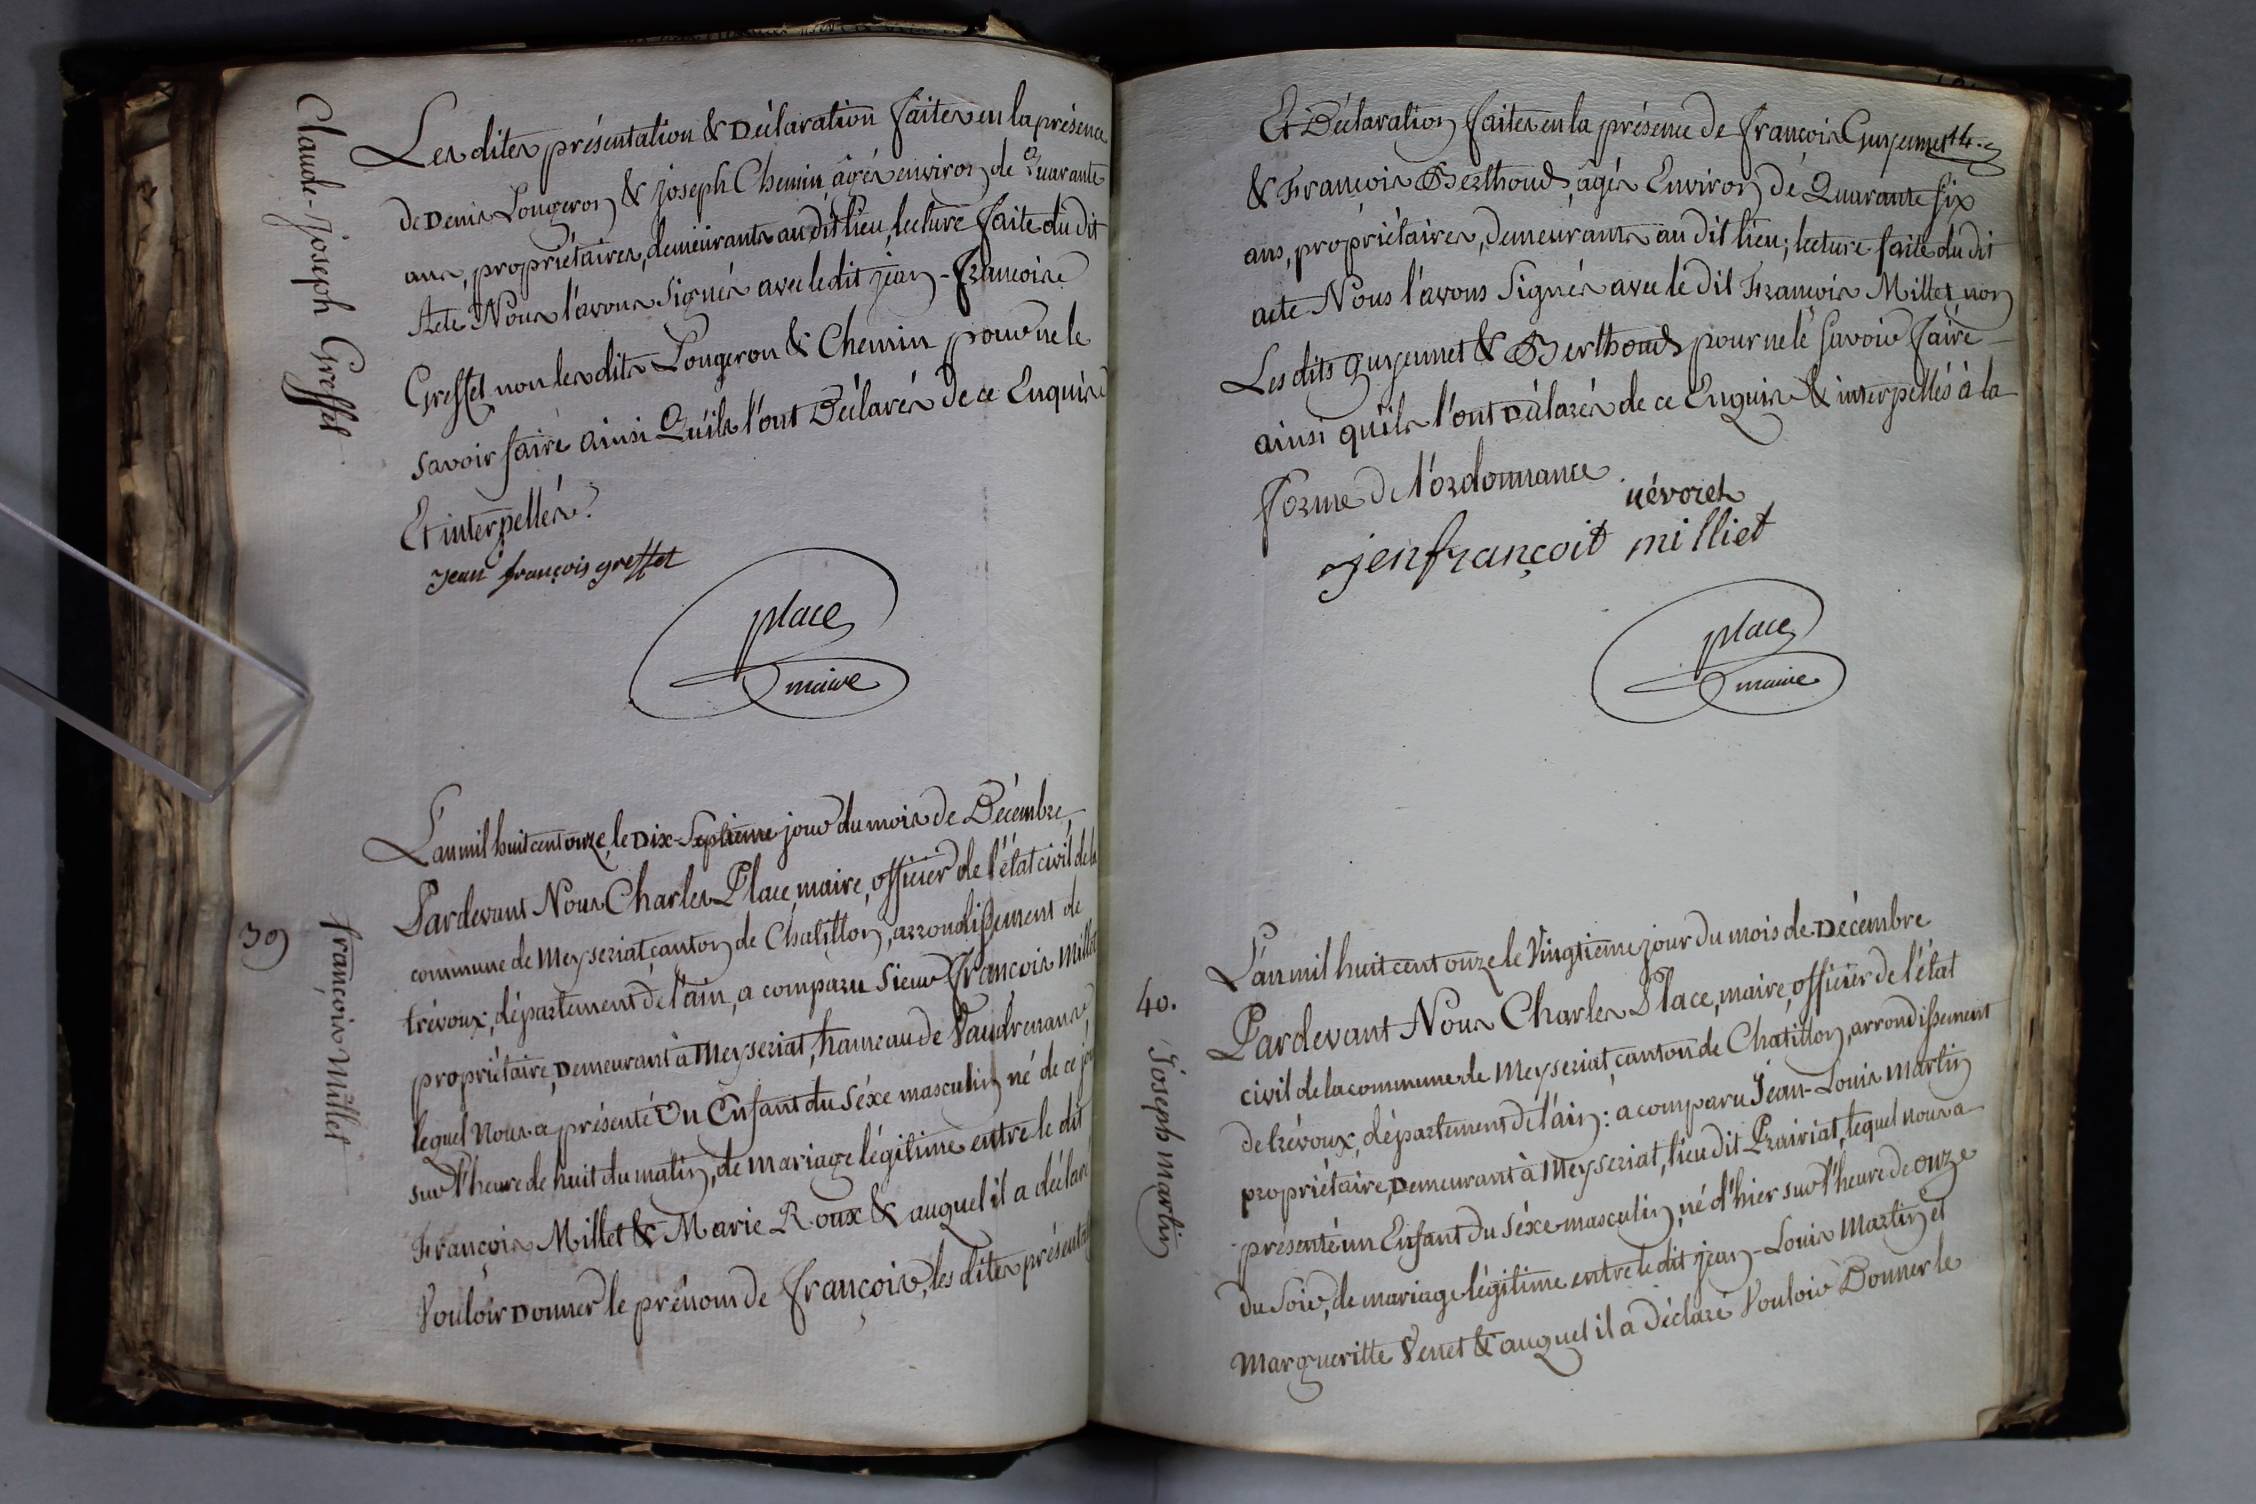 Claude-Joseph Greffet
Les dites présentation & Déclaration faites en la présence
de Denis Longeron & joseph Chemin âgés environ de Quarante
ans, propriétaires, demeurants au dit lieu, lecture faite du dit
Acte Nous l'avons signés avec le dit jean-françois
Greffet non les dits Longeron & Chemin pour ne le
savoir faire ainsi Qu'ils l'ont Déclarés de ce Enquis
Et interpellés.
jean françois greffet
place
maire
39
françois Millet
L'an mil huit cent onze, le Dix-Septieme jour du mois de Décembre,
Pardevant Nous Charles Place, maire, officier de l'état civil de la
commune de Meyseriat, canton de Chatillon, arrondissement de
trévoux, département de l'ain, a comparu Sieur françois Millet
propriétaire, Demeurant à Meyseriat, hameau de Vaudrenans,
lequel Nous a présenté Un Enfant du Séxe masculin né de ce jour
sur l'heure de huit du matin, de mariage légitime entre le dit
François Millet & Marie Roux & auquel il a déclaré
Vouloir Donner le prénom de françois, les dites présentation
14.e
Et Déclaration faites en la présence de françois Guyennet
& François Berthoud, âgés Environ de Quarante six
ans, propriétaires, demeurants au dit lieu; lecture faite du dit
acte Nous l'avons Signés avec le dit François Millet non
Les dits guyennet & Berthoud pour ne le Savoir faire
ainsi qu'ils l'ont Déclarés de ce Enquis & interpellés à la
forme de l'ordonnance
jenfrançoit milliet
place
maire
40.
Joseph Martin
L'an mil huit cent onze le Vingtieme jour du mois de Décembre
Pardevant Nous Charles Place, maire, officier de l'état
civil de la commune de Meyseriat, canton de Chatillon, arrondissement
de trévoux, département de l'ain: a comparu Jean-Louis Martin
propriétaire, Demeurant à Meyseriat, lieu dit Prairiat, lequel nous a
présenté un Enfant du Séxe masculin, né d'hier sur l'heure de onze
du Soir, de mariage légitime entre le dit jean-Louis Martin et
Margueritte Venet & auquel il a Déclaré Vouloir Donner le